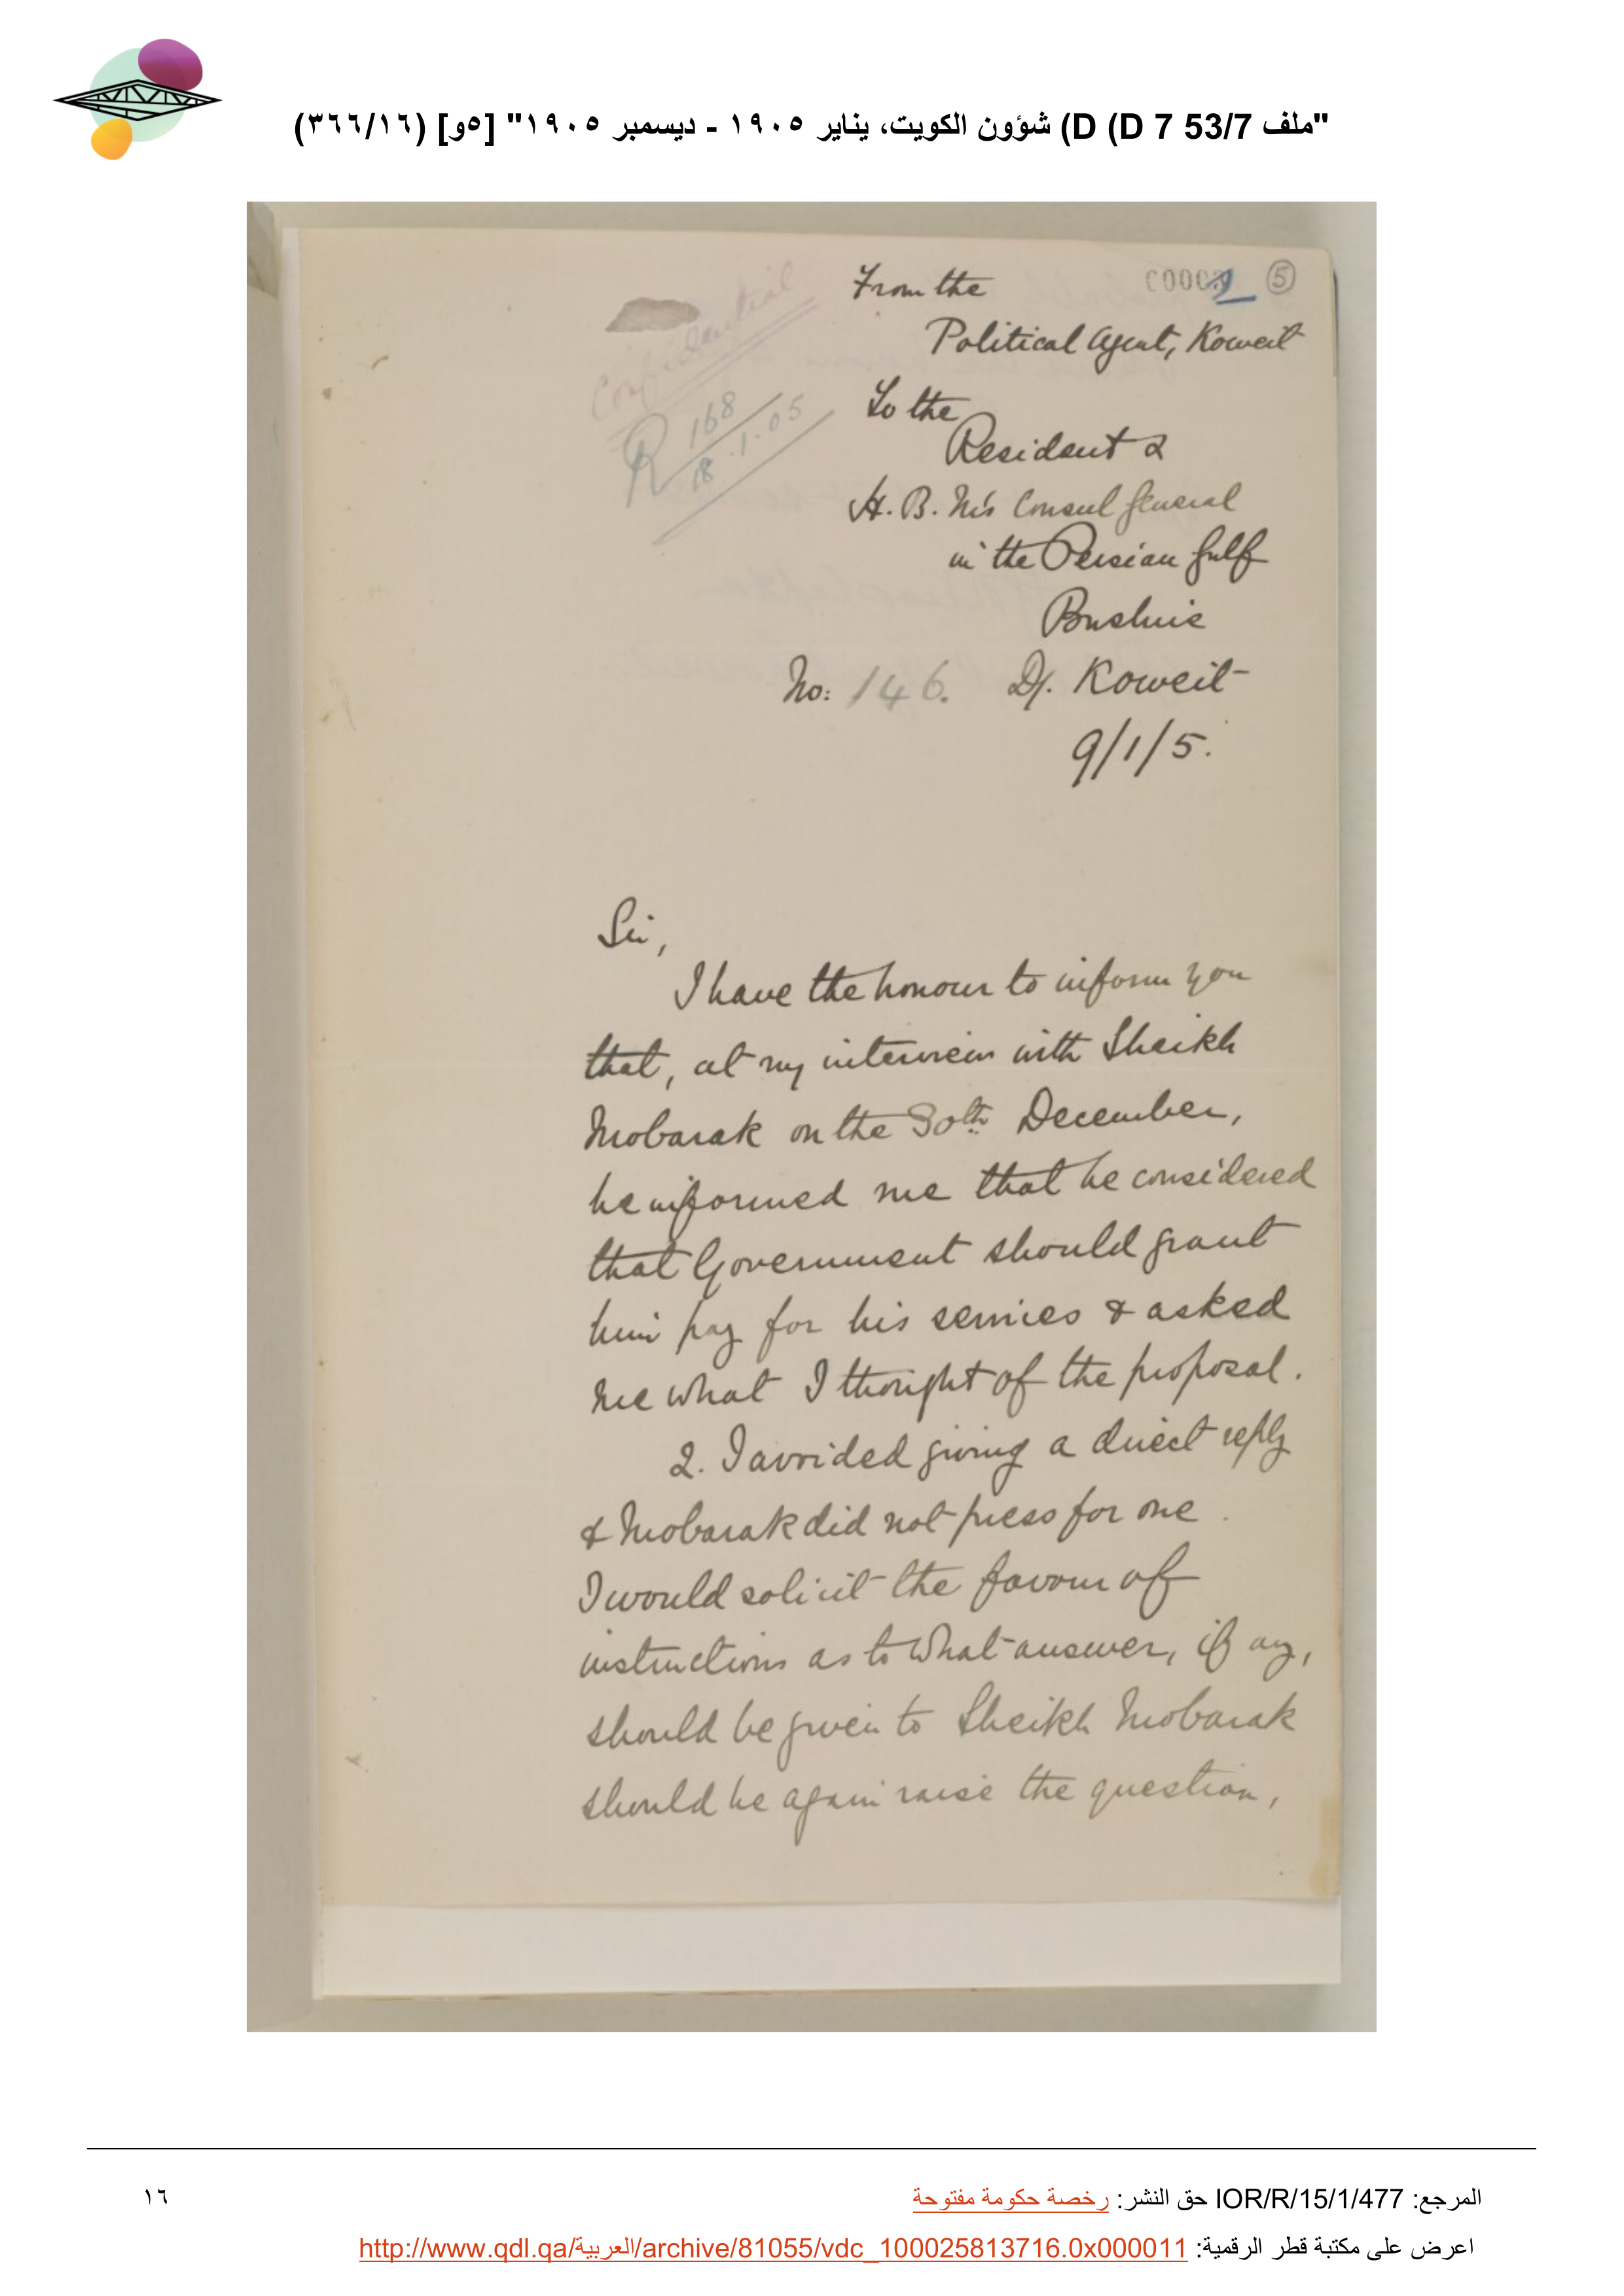 "ملف 53/7 D 7) D) شؤون الكويت، يناير ١٩٠٥ - ديسمبر ١٩٠٥" [٥و] (٣٦٦/١٦)
Confidential
R 168
18.1.05
5
From the
Political Agent, Koweit
To the
Resident &
H. B. M's Consul General
in the Persian Gulf
Bushire
No: 146. D/. Koweit
9/1/5.
Sir,
I have the honour to inform you
that, at my interview with Sheikh
Mobarak on the 30th December,
he informed me that he considered
that Government should grant
him pay for his services & asked
me what I thought of the proposal.
2. I avoided giving a direct reply
& Mobarak did not press for one.
I would solicit the favour of
instructions as to what answer, if any,
should be given to Sheikh Mobarak
should he again raise the question,
المرجع: IOR/R/15/1/477 حق النشر: رخصة حكومة مفتوحة
١٦
اعرض على مكتبة قطر الرقمية: http://www.qdl.qa/العربية/archive/81055/vdc_100025813716.0x000011